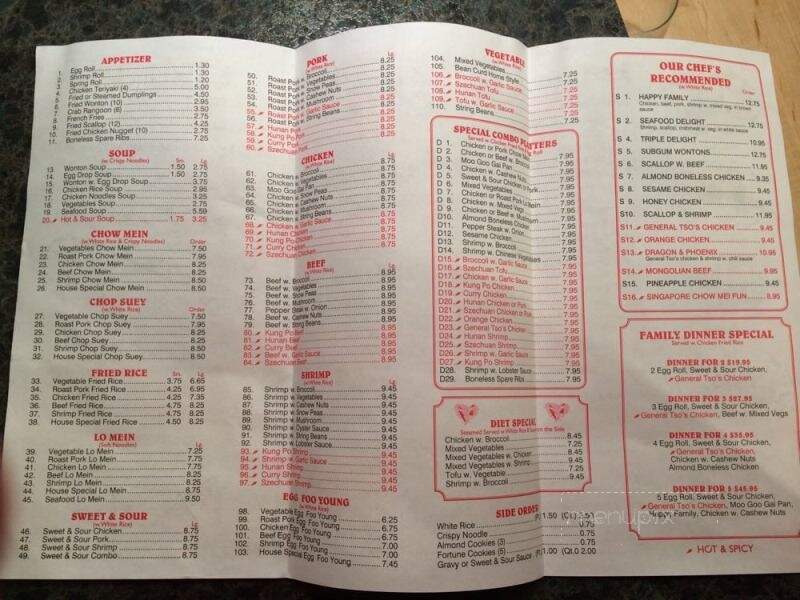 APPETIZER
1. Egg Roll 1.30
2. Shrimp Roll 1.30
3. Spring Roll 1.20
4. Chicken Teriyaki (4) 5.00
5. Fried or Steamed Dumplings 4.50
6. Fried Wonton (10) 2.95
7. Crab Rangoon (6) 3.50
8. French Fries 2.75
9. Fried Scallop (12) 4.25
10. Fried Chicken Nugget (10) 2.75
11. Boneless Spare Ribs 7.25
SOUP
(w Crispy Noodles) Sm. Lg.
13. Wonton Soup 1.50 2.75
14. Egg Drop Soup 1.50 2.75
15. Wonton w. Egg Drop Soup 3.75
16. Chicken Rice Soup 2.95
17. Chicken Noodles Soup 3.25
18. Vegetables Soup 2.75
19. Seafood Soup 5.59
20. Hot & Sour Soup 1.75 3.25
CHOW MEIN
(w. White Rice & Crispy Noodles) Order
21. Vegetables Chow Mein 7.50
22. Roast Pork Chow Mein 7.95
23. Chicken Chow Mein 8.25
24. Beef Chow Mein 8.25
25. Shrimp Chow Mein 8.50
26. House Special Chow Mein 8.50
CHOP SUEY
(w. White Rice) Order
27. Vegetable Chop Suey 7.50
28. Roast Pork Chop Suey 7.95
29. Chicken Chop Suey 8.25
30. Beef Chop Suey 8.25
31. Shrimp Chop Suey 8.50
32. House Special Chop Suey 8.50
FRIED RICE
Sm. Lg.
33. Vegetable Fried Rice 3.75 6.65
34. Roast Pork Fried Rice 4.25 6.95
35. Chicken Fried Rice 4.25 7.35
36. Beef Fried Rice 4.75 7.75
37. Shrimp Fried Rice 4.75 8.25
38. House Special Fried Rice 4.25 8.50
LO MEIN
(Soft Noodles) Lg.
39. Vegetable Lo Mein 7.25
40. Roast Pork Lo Mein 7.75
41. Chicken Lo Mein 7.75
42. Beef Lo Mein 8.25
43. Shrimp Lo Mein 8.25
44. House Special Lo Mein 8.75
45. Seafood Lo Mein 9.50
SWEET & SOUR
(w. White Rice) Lg.
46. Sweet & Sour Chicken 8.75
47. Sweet & Sour Pork 8.75
48. Sweet & Sour Shrimp 8.75
49. Sweet & Sour Combo 8.75
PORK
(w White Rice) Lg.
50. Roast Pork w. Broccoli 8.25
51. Roast Pork w. 8.25
52. Roast Pork w. Snow Peas 8.25
53. Roast Pork w. Cashew Nuts 8.25
54. Roast Pork w. Mushroom 8.25
55. Roast Pork w. Garlic Sauce 8.25
56. Roast Pork w. String Beans 8.25
57. Hunan Pork 8.25
58. Kung Po Pork 8.25
59. Curry Pork 8.25
60. Szechuan Pork 8.25
CHICKEN
(w. White Rice) Lg.
61. Chicken w. Broccoli 8.75
62. Chicken w. 8.75
63. Moo Goo Gai Pan 8.75
64. Chicken w. Snow Peas 8.75
65. Chicken w. Cashew Nuts 8.75
66. Chicken w. Mushroom 8.75
67. Chicken w. String Beans 8.75
68. Chicken w. Garlic Sauce 8.75
69. Hunan Chicken 8.75
70. Kung Po Chicken 8.75
71. Curry Chicken 8.75
72. Szechuan Chicken 8.75
BEEF
(w. White Rice) Lg.
73. Beef w. Broccoli 8.95
74. Beef w. Vegetables 8.95
75. Beef w. Snow Peas 8.95
76. Beef w. Mushroom 8.95
77. Pepper Steak w. Onion 8.95
78. Beef w. Cashew Nuts 8.95
79. Beef w. String Beans 8.95
80. Kung Po Beef 8.95
81. Hunan Beef 8.95
82. Curry Beef 8.95
83. Beef w. Garlic Sauce 8.95
84. Szechuan Beef 8.95
SHRIMP
(w. White Rice) Lg.
85. Shrimp w. Broccoli 9.45
86. Shrimp w. Vegetables 9.45
87. Shrimp w. Cashew Nuts 9.45
88. Shrimp w. Snow Peas 9.45
89. Shrimp w. Mushroom 9.45
90. Shrimp w. Oyster Sauce 9.45
91. Shrimp w. String Beans 9.45
92. Shrimp w. Lobster Sauce 9.45
93. Kung Po Shrimp 9.45
94. Shrimp w. Garlic Sauce 9.45
95. Hunan Shrimp 9.45
96. Curry Shrimp 9.45
97. Szechuan Shrimp 9.45
EGG FOO YOUNG
(w. White Rice)
98. Vegetable Egg Foo Young 6.25
99. Roast Pork Egg Foo Young 6.25
100. Chicken Egg Foo Young 6.75
101. Beef Egg Foo Young 6.75
102. Shrimp Egg Foo Young 7.00
103. House Special Egg Foo Young 7.45
VEGETABLE
(w. White Rice)
104. Mixed Vegetables 7.25
105. Bean Curd Home Style 7.25
106. Broccoli w. Garlic Sauce 7.25
107. Szechuan Tofu 7.25
108. Hunan Tofu 7.25
109. Tofu w. Garlic Sauce 7.25
110. String Beans 7.25
SPECIAL COMBO PLATTERS
Served w. Chicken Fried Rice Roll
D 1. Chicken or Pork Chow Mein
D 2. Chicken or Beef w. Broccoli 7.95
D 3. Moo Goo Gai Pan 7.95
D 4. Chicken w. Cashew Nuts 7.95
D 5. Sweet & Sour Chicken or Pork 7.95
D 6. Mixed Vegetables 7.95
D 7. Chicken or Roast Pork Lo Mein 7.95
D 8. Chicken w. Mixed Vegetables 7.95
D 9. Chicken or Beef w. Mushroom 7.95
D10. Almond Boneless Chicken 7.95
D11. Pepper Steak w. Onion 7.95
D12. Sesame Chicken 7.95
D13. Shrimp w. Broccoli 7.95
D14. Shrimp w. Chinese Vegetables 7.95
D15. Broccoli w. Garlic Sauce 7.95
D16. Szechuan Tofu 7.95
D17. Chicken w. Garlic Sauce 7.95
D18. Kung Po Chicken 7.95
D19. Curry Chicken 7.95
D20. Hunan Chicken or Pork 7.95
D21. Szechuan Chicken or Pork 7.95
D22. Orange Chicken 7.95
D23. General Tso's Chicken 7.95
D24. Hunan Shrimp 7.95
D25. Szechuan Shrimp 7.95
D26. Shrimp w. Garlic Sauce 7.95
D27. Kung Po Shrimp 7.95
D28. Shrimp w. Lobster Sauce 7.95
D29. Boneless Spare Ribs 7.95
DIET SPECIAL
Steamed Served w White Rice & Sauce on the Side
Chicken w. Broccoli 8.45
Mixed Vegetables 7.25
Mixed Vegetables w. Chicken 8.45
Mixed Vegetables w. Shrimp 9.45
Tofu w. Vegetable 7.25
Shrimp w. Broccoli 9.45
SIDE ORDER
White Rice (Pt.) 1.50 (Qt.) 2.50
Crispy Noodle 0.75
Almond Cookies (3) 0.75
Fortune Cookies (5) 0.75
Gravy or Sweet & Sour Sauce (Pt.) 1.00 (Qt.) 2.00
OUR CHEF'S
RECOMMENDED
(w White Rice)
S 1. HAPPY FAMILY 12.75
Chicken, beef, pork, shrimp w. mixed veg. in brown sauce
S 2. SEAFOOD DELIGHT 12.75
Shrimp, scallop, crabmeat w. veg. in white sauce
S 4. TRIPLE DELIGHT 10.95
S 5. SUBGUM WONTONS 12.75
S 6. SCALLOP W. BEEF 11.95
S 7. ALMOND BONELESS CHICKEN 9.35
S 8. SESAME CHICKEN 9.45
S 9. HONEY CHICKEN 9.45
S10. SCALLOP & SHRIMP 11.95
S11. GENERAL TSO'S CHICKEN 9.45
S12. ORANGE CHICKEN 9.45
S13. DRAGON & PHOENIX 10.95
General Tso's chicken & shrimp w. chili sauce
S14. MONGOLIAN BEEF 9.95
S15. PINEAPPLE CHICKEN 9.45
S16. SINGAPORE CHOW MEI FUN 8.95
FAMILY DINNER SPECIAL
Served w. Chicken Fried Rice
DINNER FOR 2 $19.95
2 Egg Roll, Sweet & Sour Chicken,
General Tso's Chicken
DINNER FOR 3 $27.95
3 Egg Roll, Sweet & Sour Chicken,
General Tso's Chicken, Beef w. Mixed Vegs
DINNER FOR 4 $35.95
4 Egg Roll, Sweet & Sour Chicken,
General Tso's Chicken,
Chicken w. Cashew Nuts
Almond Boneless Chicken
DINNER FOR 5 $45.95
5 Egg Roll, Sweet & Sour Chicken,
General Tso's Chicken, Moo Goo Gai Pan,
Happy Family, Chicken w. Cashew Nuts
HOT & SPICY
menupix